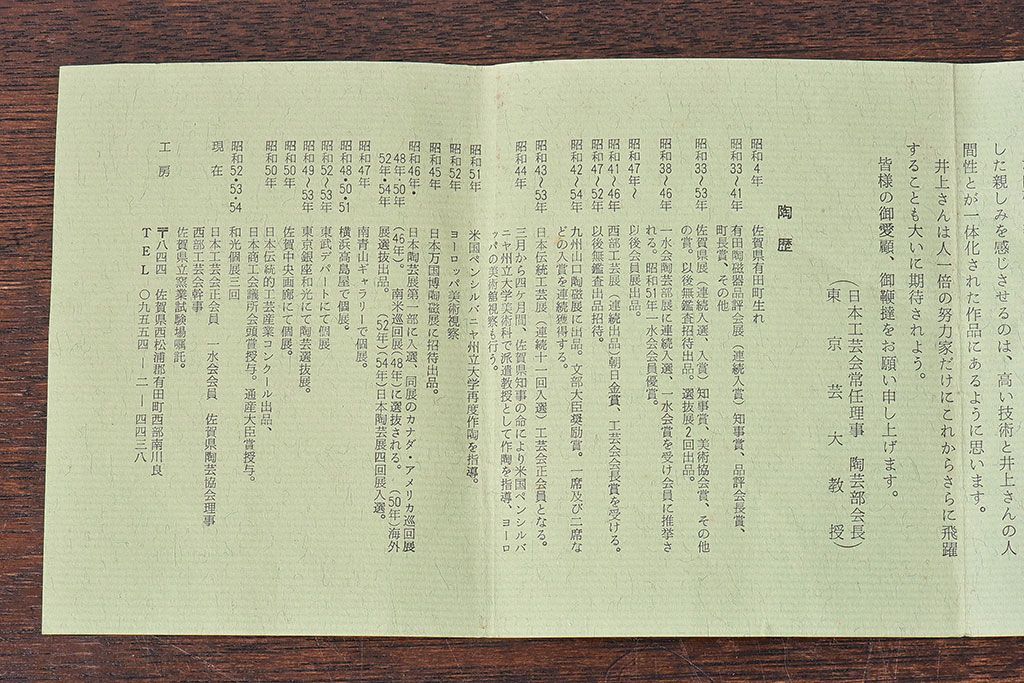 した親しみを感じさせるのは、高い技術と井上さんの人
間性とが一体化された作品にあるように思います。
井上さんは人一倍の努力家だけにこれからさらに飛躍
することも大いに期待されよう。
皆様の御愛顧、御鞭撻をお願い申し上げます。
(日本工芸会常任理事 陶芸部会長)
東京芸大教授
陶歴
昭和4年 佐賀県有田町生れ
昭和33〜41年 有田陶磁器品評会展(連続入賞)知事賞、品評会長賞、
町長賞、その他
昭和33〜53年 佐賀県展(連続入選、入賞)知事賞、美術協会賞、その他
の賞。以後無鑑査招待出品。選抜展2回出品。
昭和38〜46年 一水会陶芸部展に連続入選、一水会賞を受け会員に推挙さ
れる。昭和51年一水会会員優賞。
昭和47年〜 以後会員展出品。
昭和41〜46年 西部工芸展(連続出品)朝日金賞、工芸会会長賞を受ける。
昭和47〜52年 以後無鑑査出品招待。
昭和42〜54年 九州山口陶磁展に出品。文部大臣奨励賞。一席及び二席な
どの入賞を連続獲得する。
昭和43〜53年 日本伝統工芸展、(連続十一回入選)工芸会正会員となる。
昭和44年 三月から四ケ月間、佐賀県知事の命により米国ペンシルバ
ニヤ州立大学美術科で派遣教授として作陶を指導、ヨーロ
ッパの美術館視察も行う。
昭和51年 米国ペンシルバニヤ州立大学再度作陶を指導。
昭和52年 ヨーロッパ美術視察
昭和45年 日本万国博陶磁展に招待出品。
昭和46年・ 日本陶芸展第一部に入選、同展のカナダ・アメリカ巡回展
48年・50年 (46年)。南米巡回展(48年)に選抜される。(50年)海外
52年・54年 展選抜出品。(52年)(54年)日本陶芸展四回展入選。
昭和47年 南青山ギャラリーで個展。
昭和48・50・51 横浜高島屋で個展。
昭和52〜53年 東武デパートにて個展。
昭和49〜53年 東京銀座和光にて陶芸選抜展。
昭和50年 佐賀中央画廊にて個展。
昭和50年 日本伝統的工芸産業コンクール出品、
日本商工会議所会頭賞授与。通産大臣賞授与。
昭和52・53・54 和光個展三回
現在 日本工芸会正会員 一水会会員 佐賀県陶芸協会理事
西部工芸会幹事
佐賀県立窯業試験場嘱託。
工房 〒八四四 佐賀県西松浦郡有田町西部南川良
TEL 〇九五五四―二―四四三八